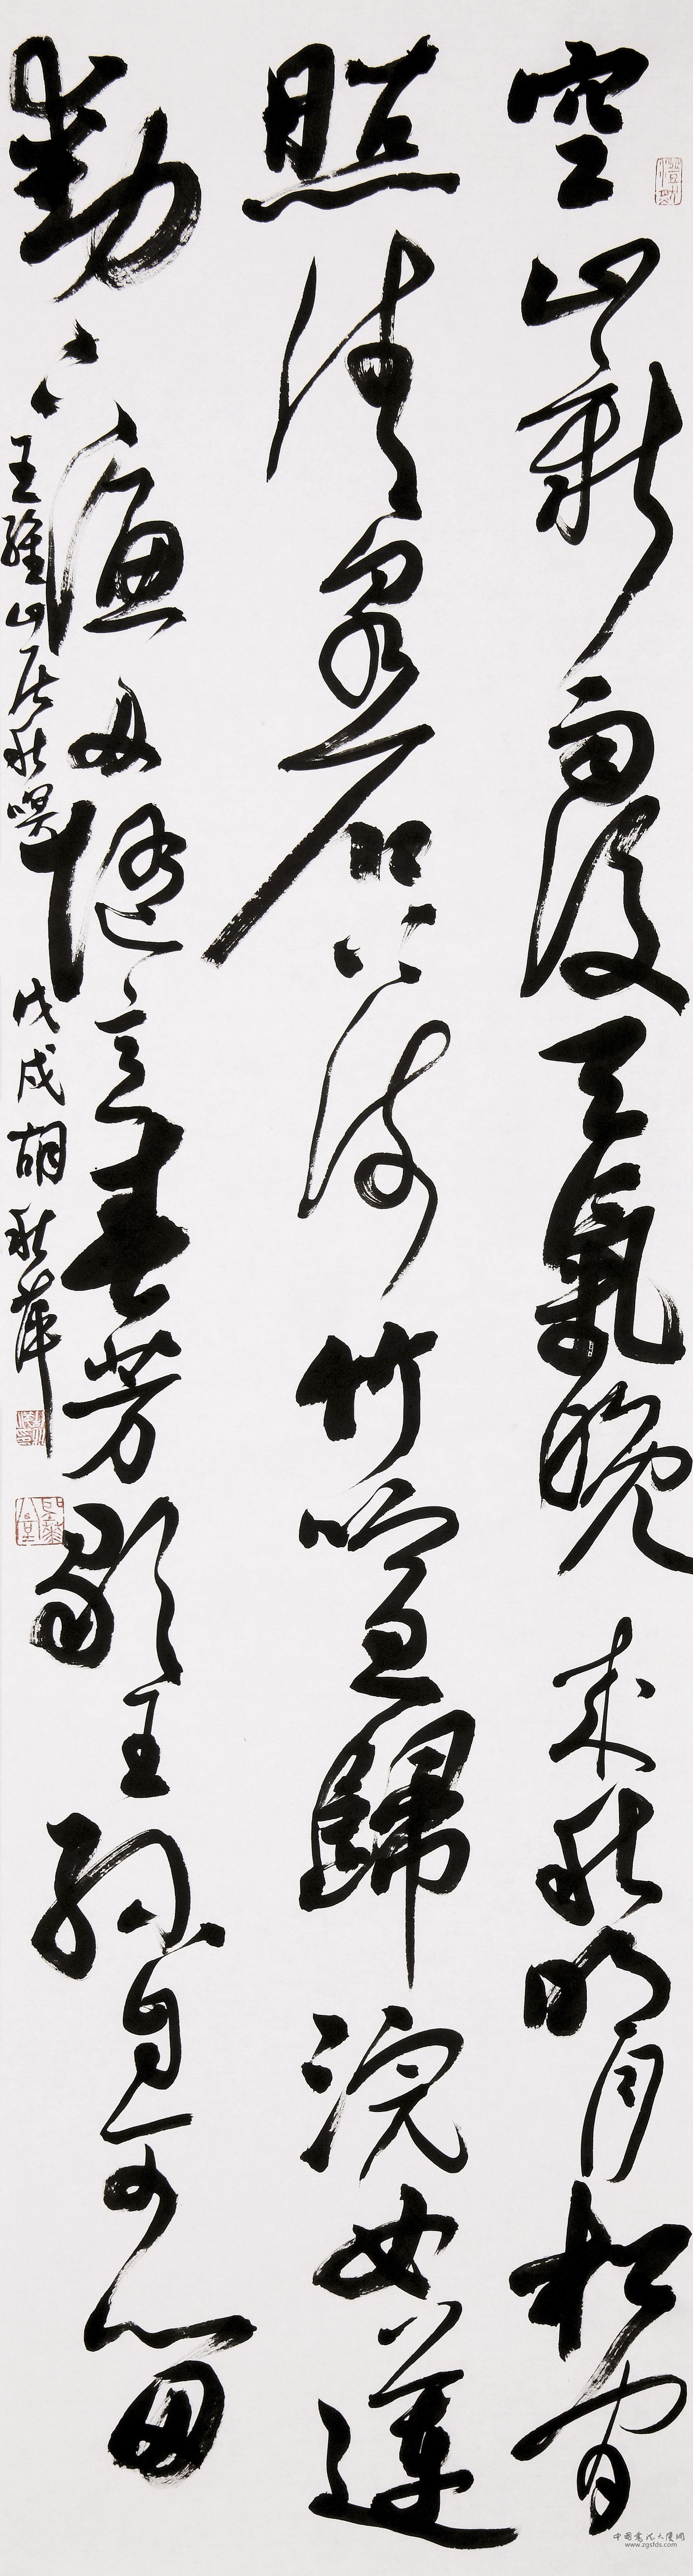 空山新雨後天氣晚来秋明月松間
照清泉石上流竹喧歸浣女蓮
動下漁舟随意春芳歇王孫自可留
王維山居秋暝 戊戌胡秋萍
中國書法大廈網
www.zgsfds.com